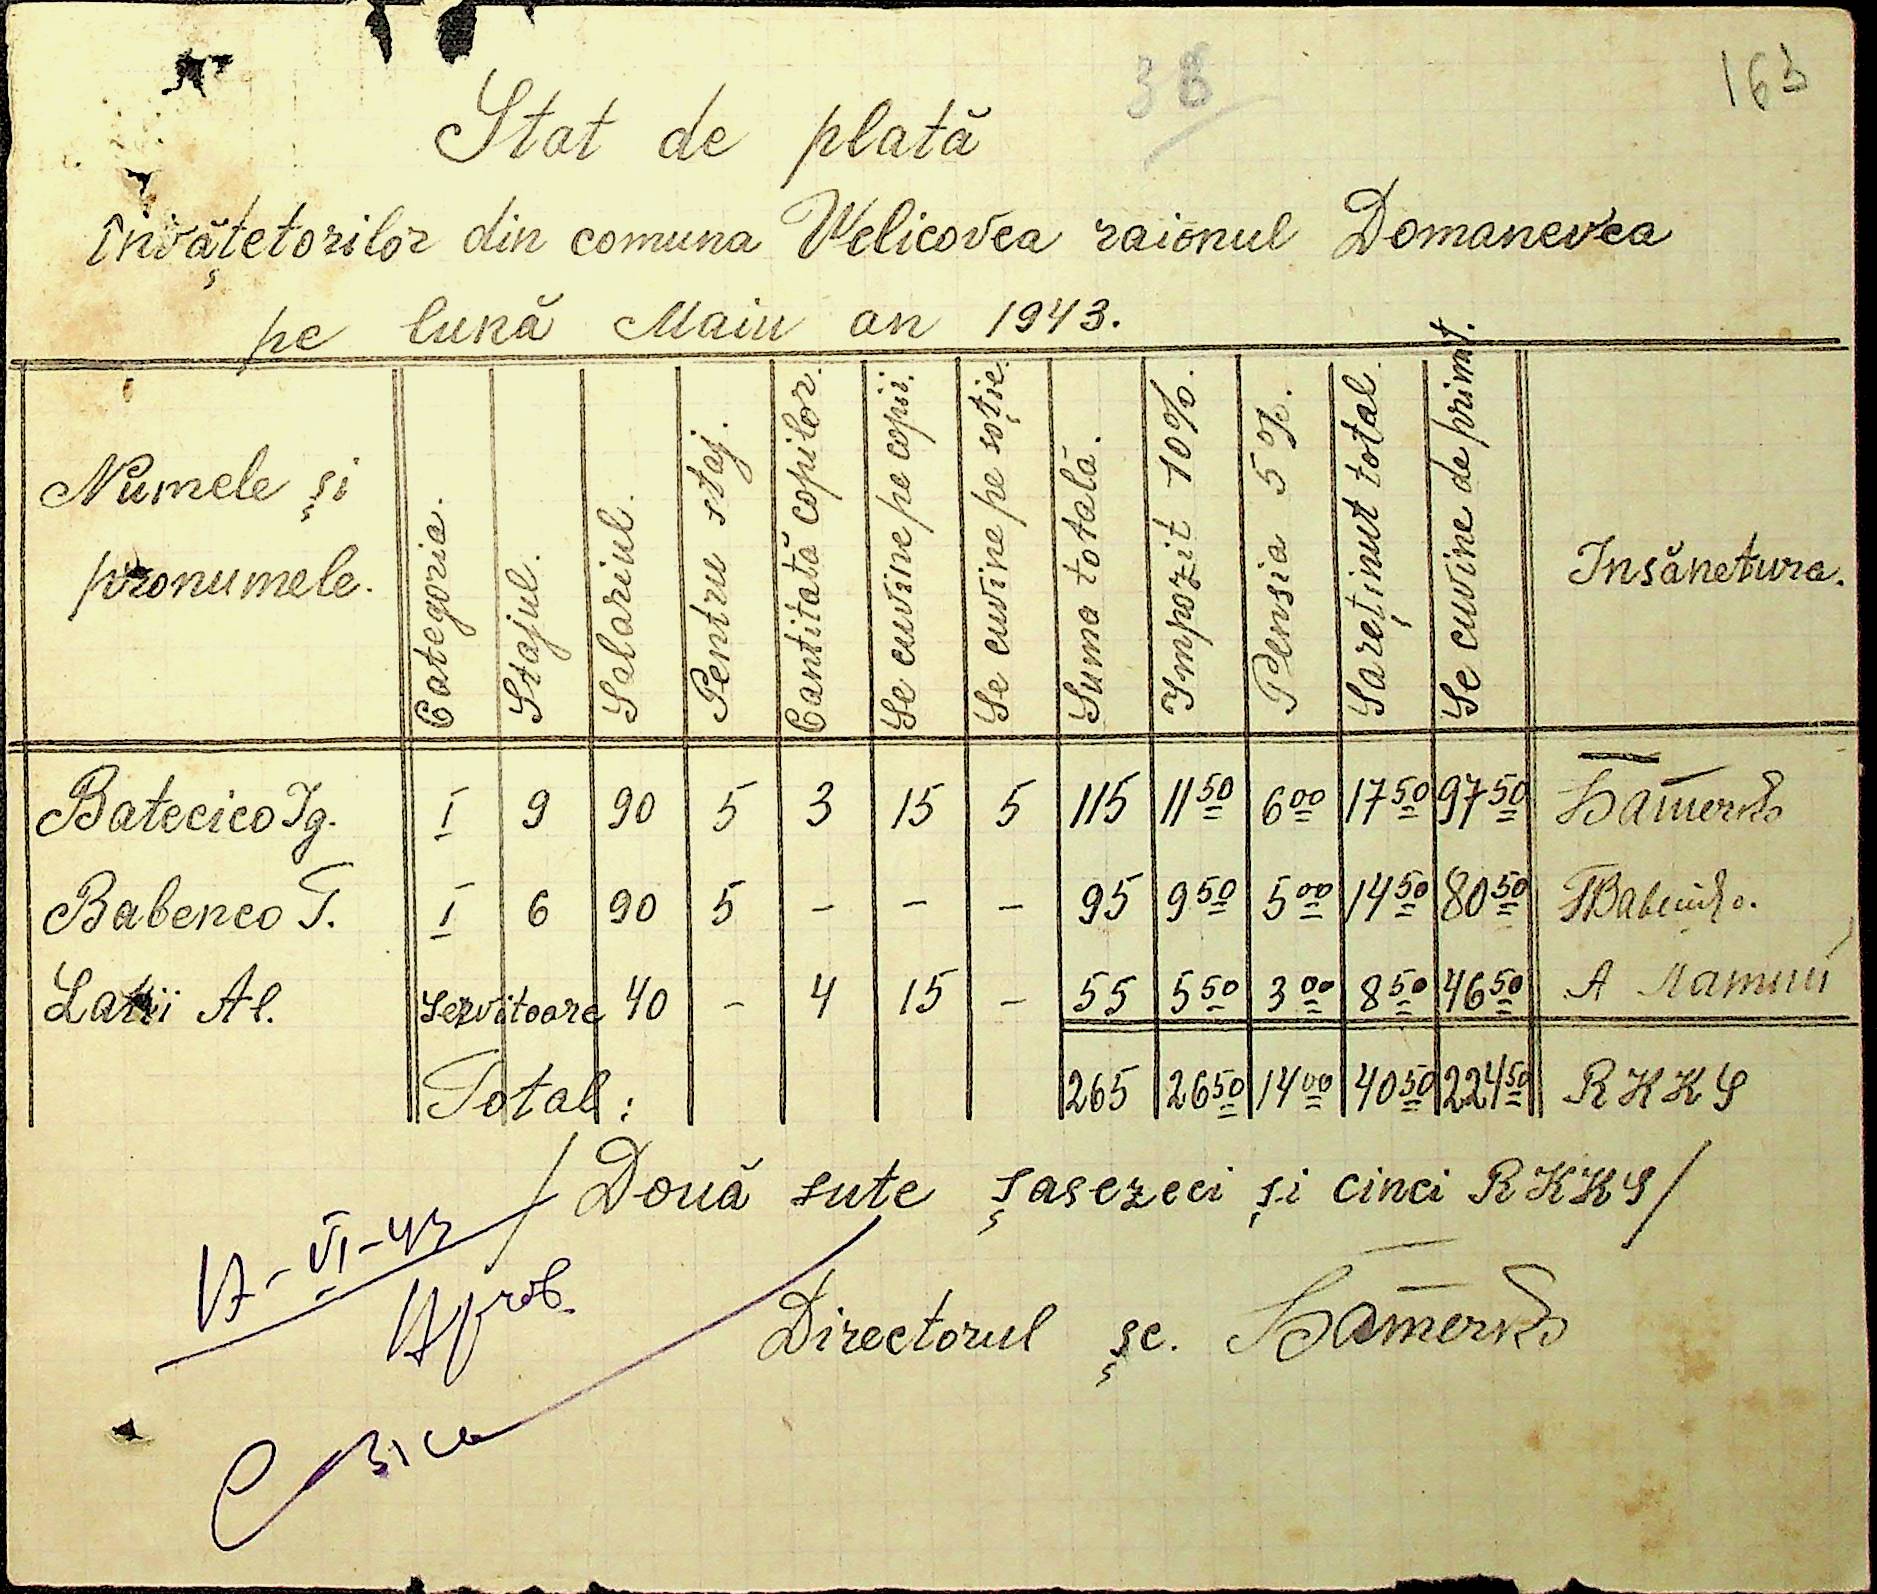 38
163
Stat de plată
Învățetorilor din comuna Velicovea raionul Domanevca
pe lună Maiu an 1943.
Numele și pronumele. Categoria. Stajul. Salariul. Pentru staj. Cantitată copiilor. Se cuvine pe copii. Se cuvine pe soție. Suma totală. Impozit 10%. Pensia 5%. Sareținut total. Se cuvine de primit. Insănetura.
Batecico Ig. I 9 90 5 3 15 5 115 11 50 6 00 17 50 97 50
Babenco T. I 6 90 5 - - - 95 9 50 5 00 14 50 80 50
Latii Al. Servitoare 40 - 4 15 - 55 5 50 3 00 8 50 46 50
Total: 265 26 50 14 00 40 50 224 50 RKKS
/Două sute șasezeci și cinci RKKS/
17-VI-43
Aprob.
Directorul șc.